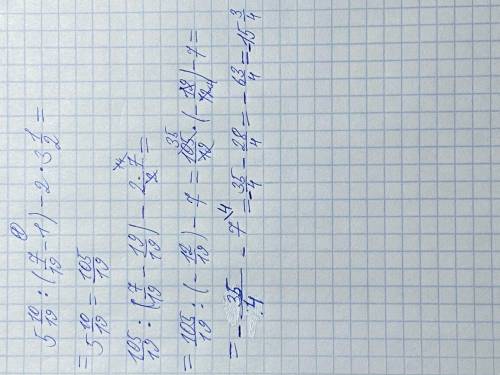 5 10/19 : (7/19 - 1) - 2 · 3 1/2 =
= 5 10/19 = 105/19
105/19 : (7/19 - 19/19) - 2 · 7/2 =
= 105/19 : (- 12/19) - 7 = 105/12 · (- 19/12) - 7 =
= - 35/4 - 7 = - 35/4 - 28/4 = - 63/4 = - 15 3/4